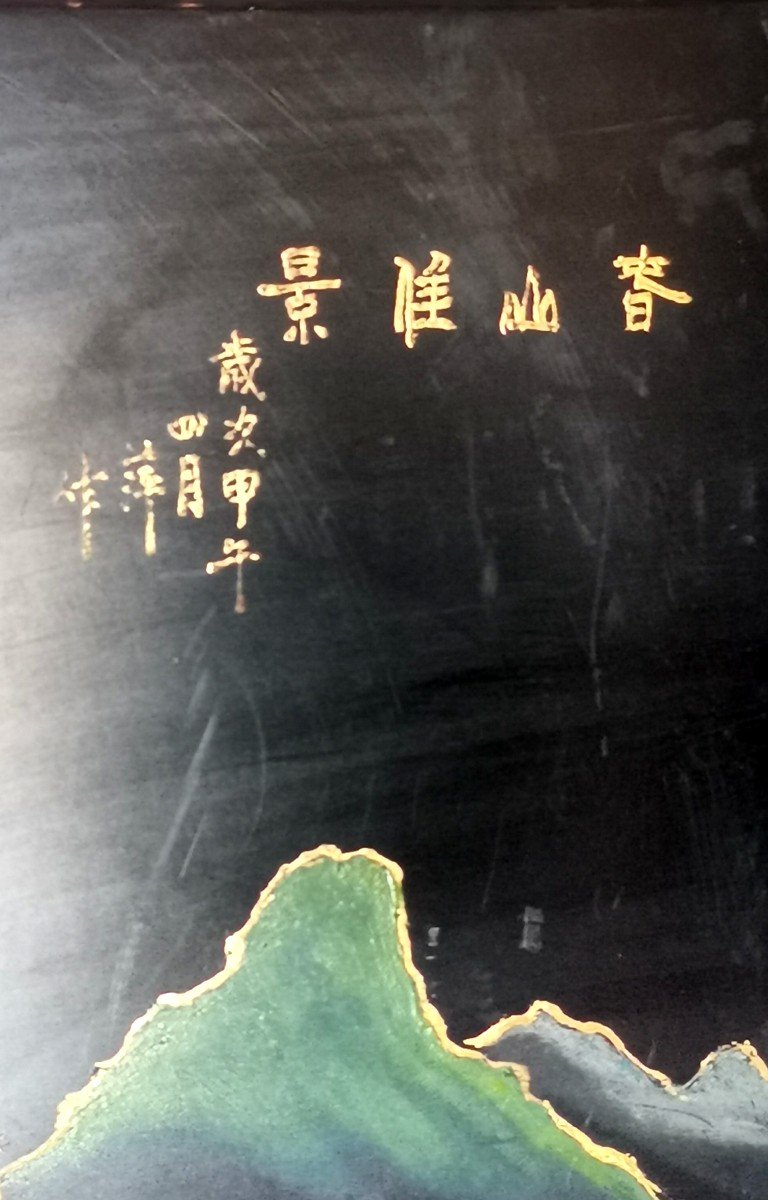 春山佳景
歲次甲午
四月
萍
作